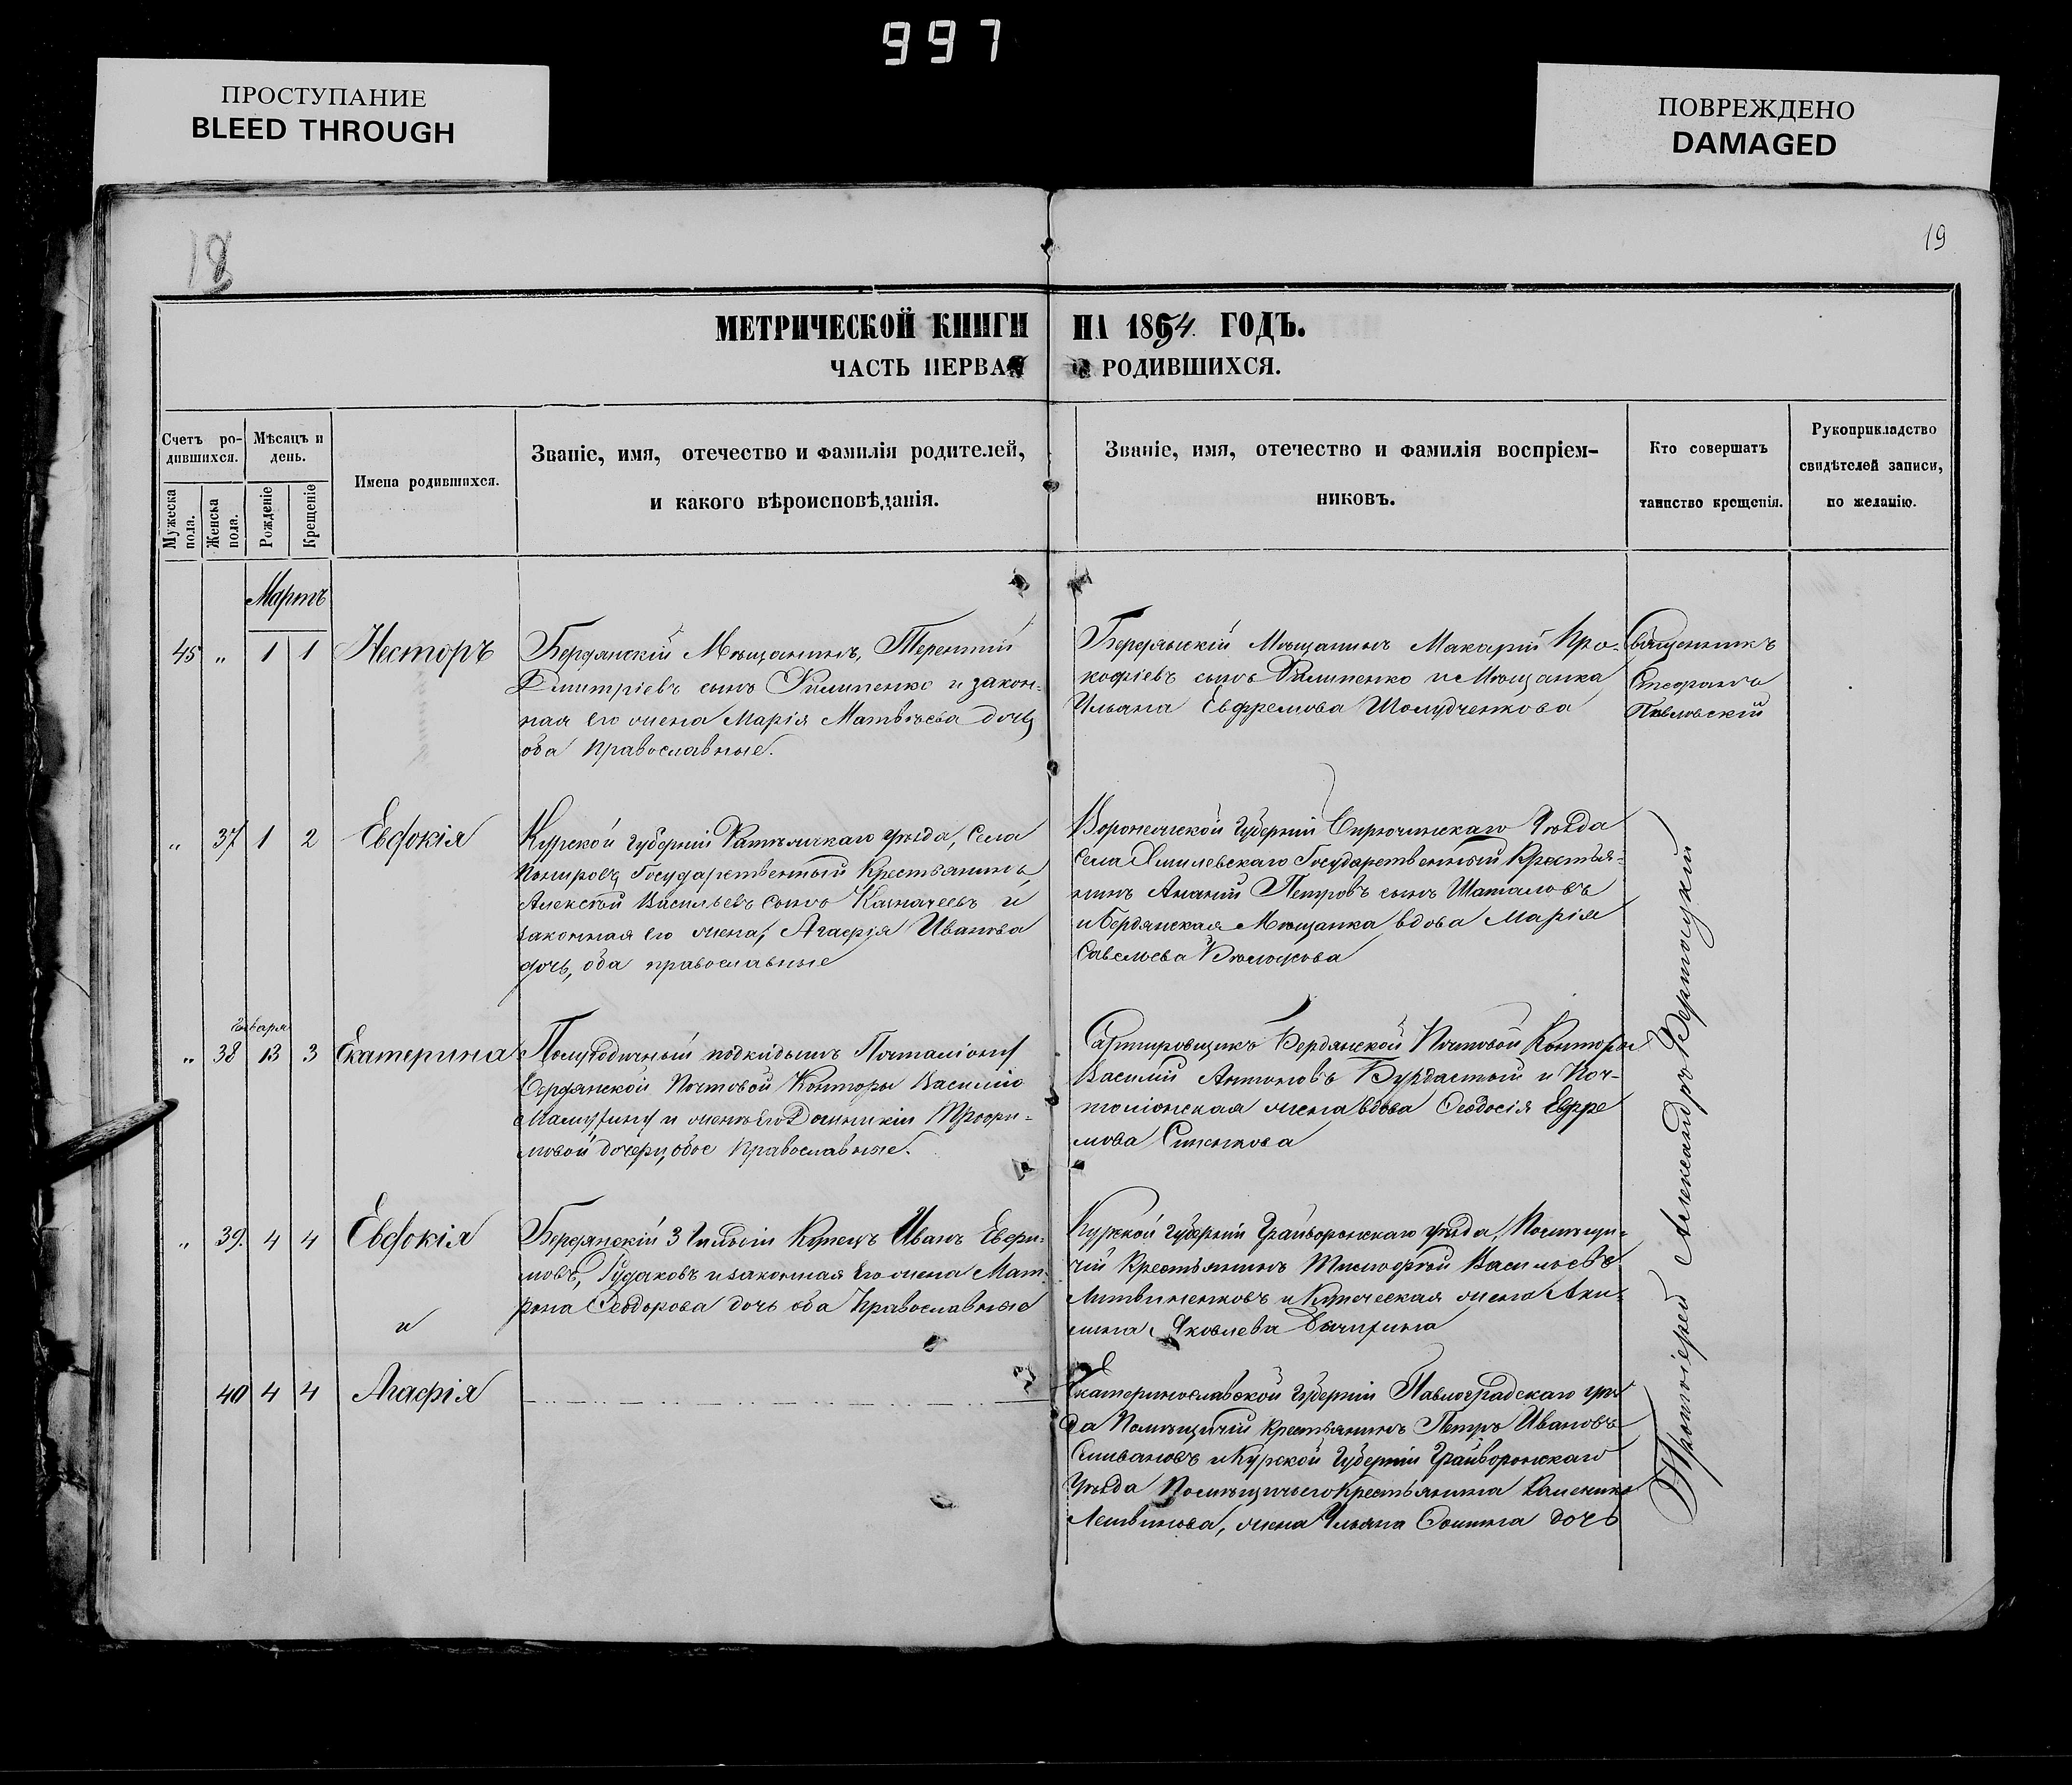 997
ПРОСТУПАНИЕ
BLEED THROUGH
ПОВРЕЖДЕНО
DAMAGED
18
19
МЕТРИЧЕСКОЙ КНИГИ НА 1854 ГОДЪ.
ЧАСТЬ ПЕРВАЯ О РОДИВШИХСЯ.
Счетъ ро-
дившихся.
Мужеска пола.
Женска пола.
Мѣсяцъ и
день.
Рожденіе
Крещеніе
Имена родившихся.
Званіе, имя, отечество и фамилія родителей,
и какого вѣроисповѣданія.
Званіе, имя, отечество и фамилія воспріем-
никовъ.
Кто совершатъ
таинство крещенія.
Рукоприкладство
свидѣтелей записи,
по желанію.
Мартъ
45 " 1 1 Несторъ
Бердянскій Мѣщанинъ, Терентій
Дмитріевъ сынъ Филипенко и закон-
ная его жена Марія Матвѣева дочь
оба православные.
Бердянскій Мѣщанинъ Макарій Про-
кофіевъ сынъ Филипенко и Мѣщанка
Ульяна Евфремова Шолудченкова
Священникъ
Стефанъ
Павловскій
" 37 1 2 Евдокія
Курской Губерніи уѣзда, Села
Государственный Крестьянинъ
Алексѣй Васильевъ сынъ Казначеевъ и
законная его жена, Агафія Иванова
дочь, оба православные
Воронежской Губерніи Бирюченскаго Уѣзда
Села Государственный Крестья-
нинъ Ананій Петровъ сынъ Шаталовъ
и Бердянская Мѣщанка вдова Марія
Савельева
Января
" 38 13 3 Екатерина
подкидышъ Почталіону
Бердянской Почтовой Конторы Василію
и женѣ его Трофи-
мовой дочери, обое Православные.
Сортировщикъ Бердянской Почтовой Конторы
Василій Антоновъ и Поч-
таліонская жена вдова Ѳеодосія Евфре
мова
" 39. 4 4 Евдокія
Бердянскій 3 Гильдіи Купецъ Иванъ Евфи-
мовъ, Гудаковъ и законная его жена Мат-
рона Ѳеодорова дочь оба Православные
Курской Губерніи Грайворонскаго уѣзда, Помѣщи-
чій Крестьянинъ Тимофей Васильевъ
Литвиненковъ и Купеческая жена Аки-
лина Яковлева
и
40 4 4 Агафія
Екатеринославской Губерніи Павлоградскаго уѣз
да Помѣщичій Крестьянинъ Петръ Ивановъ
Селивановъ и Курской Губерніи Грайворонскаго
Уѣзда Помѣщичьего Крестьянина
жена Ульяна Ѳомина дочь
Протоіерей Александръ